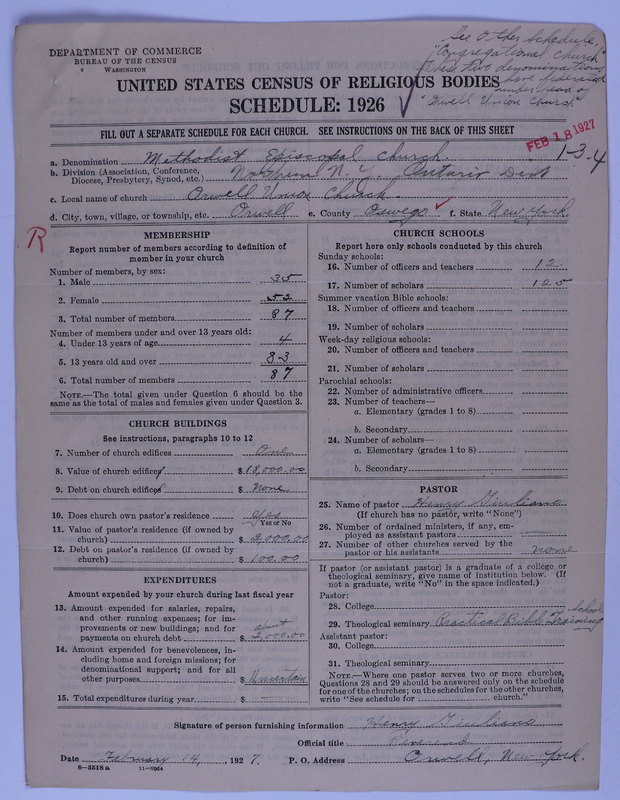 See Other Schedule,
"Congregational Church"
These two denominations
have federated
under head of
"Orwell Union Church"
DEPARTMENT OF COMMERCE
BUREAU OF THE CENSUS
WASHINGTON
UNITED STATES CENSUS OF RELIGIOUS BODIES
SCHEDULE: 1926
FILL OUT A SEPARATE SCHEDULE FOR EACH CHURCH. SEE INSTRUCTIONS ON THE BACK OF THIS SHEET
FEB 18 1927
1-3-4
a. Denomination Methodist Episcopal Church
b. Division (Association, Conference, Diocese, Presbytery, Synod, etc.) Northern N.Y. Ontario Dist
c. Local name of church Orwell Union Church
d. City, town, village, or township, etc. Orwell e. County Oswego f. State New York
R
MEMBERSHIP
Report number of members according to definition of
member in your church
Number of members, by sex:
1. Male 35
2. Female 52
3. Total number of members 87
Number of members under and over 13 years old:
4. Under 13 years of age 4
5. 13 years old and over 83
6. Total number of members 87
NOTE.—The total given under Question 6 should be
same as the total of males and females given under Question 3.
CHURCH BUILDINGS
See instructions, paragraphs 10 to 12
7. Number of church edifices One
8. Value of church edifices $18,000.00
9. Debt on church edifices $ None
10. Does church own pastor's residence yes
Yes or No
11. Value of pastor's residence (if owned by
church) $ 2,000.00
12. Debt on pastor's residence (if owned by
church) $ 100.00
EXPENDITURES
Amount expended by your church during last fiscal year
13. Amount expended for salaries, repairs,
and other running expenses; for im-
provements or new buildings; and for
payments on church debt $ about 2,000.00
14. Amount expended for benevolences, in-
cluding home and foreign missions; for
denominational support; and for all
other purposes $ Uncertain
15. Total expenditures during year $
CHURCH SCHOOLS
Report here only schools conducted by this church
Sunday schools:
16. Number of officers and teachers 12
17. Number of scholars 125
Summer vacation Bible schools:
18. Number of officers and teachers
19. Number of scholars
Week-day religious schools:
20. Number of officers and teachers
21. Number of scholars
Parochial schools:
22. Number of administrative officers
23. Number of teachers—
a. Elementary (grades 1 to 8)
b. Secondary
24. Number of scholars—
a. Elementary (grades 1 to 8)
b. Secondary
PASTOR
25. Name of pastor Henry Giuliano
(If church has no pastor, write "None")
26. Number of ordained ministers, if any, em-
ployed as assistant pastors
27. Number of other churches served by the
pastor or his assistants none
If pastor (or assistant pastor) is a graduate of a college or
theological seminary, give name of institution below. (If
not a graduate, write "No" in the space indicated.)
Pastor:
28. College
29. Theological seminary Practical Bible Training School
Assistant pastor:
30. College
31. Theological seminary
NOTE.—Where one pastor serves two or more churches,
Questions 28 and 29 should be answered only on the schedule
for one of the churches; on the schedules for the other churches,
write "See schedule for church."
Signature of person furnishing information Henry Giuliano
Official title Reverend
Date February 14, 1927. P. O. Address Orwell, New York.
8—5518a 11—9064